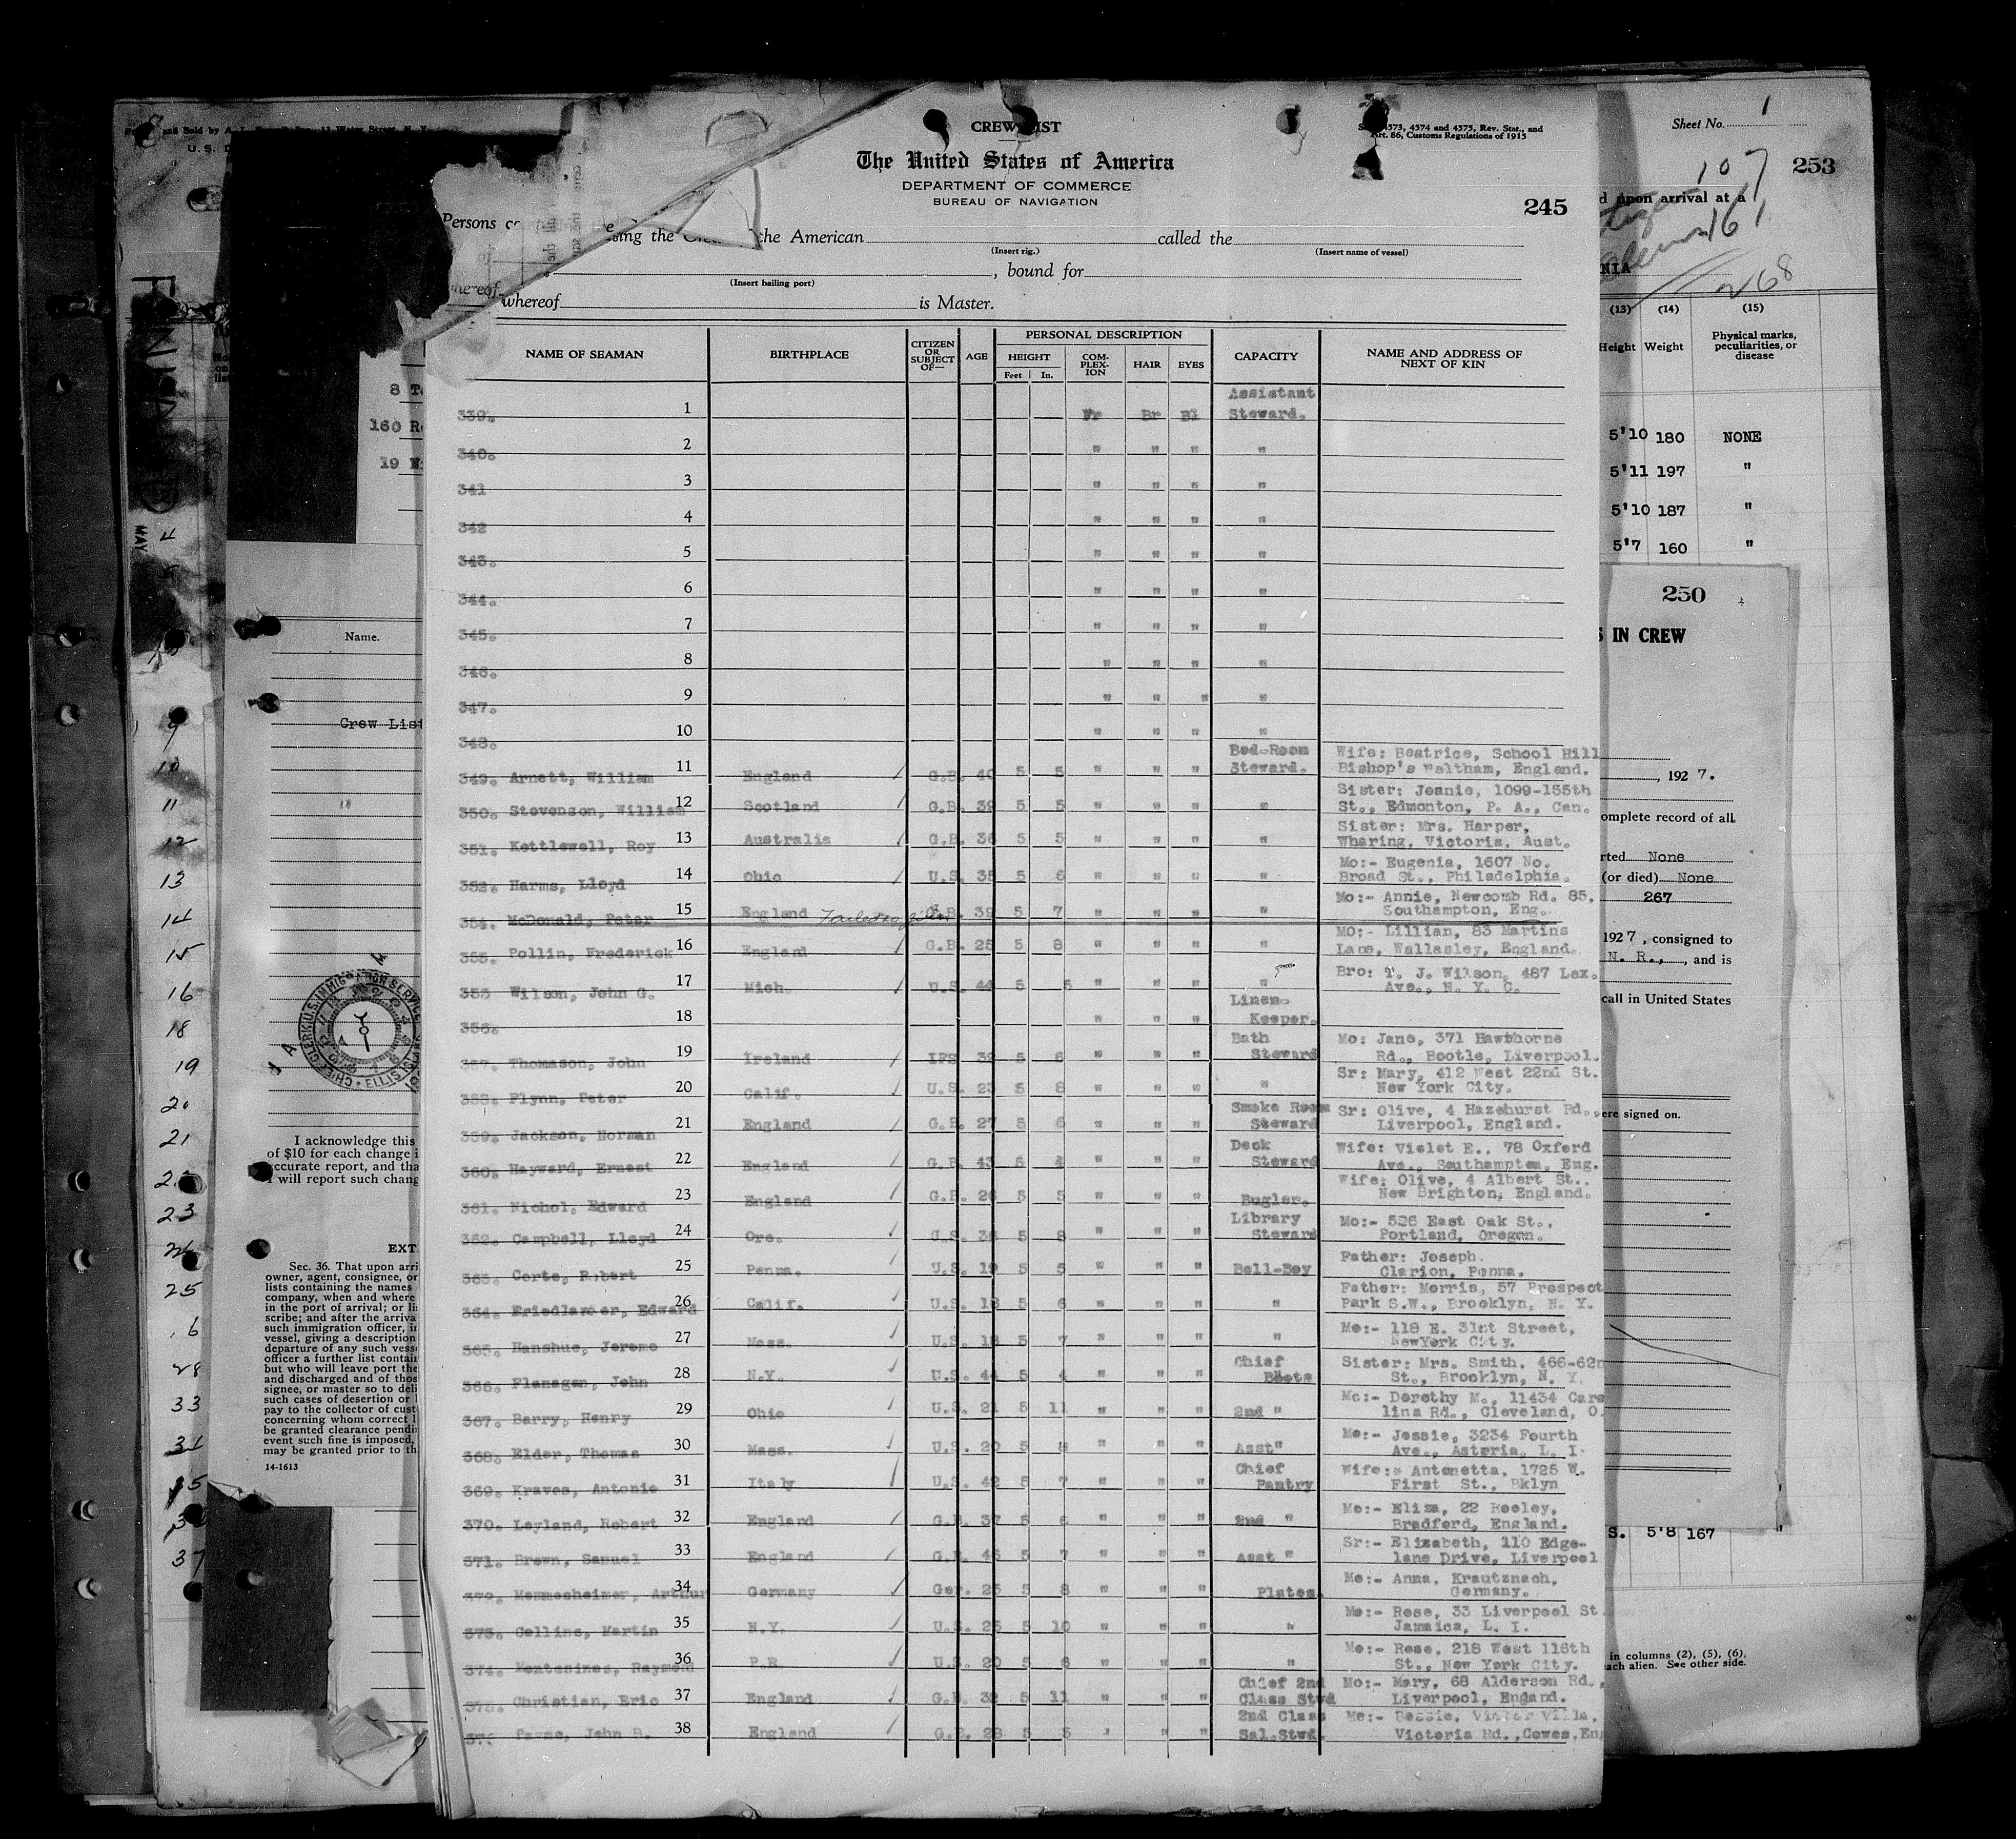 CREW LIST
4573, 4574 and 4575, Rev. Stat., and
Art. 86, Customs Regulations of 1915
The United States of America
DEPARTMENT OF COMMERCE
BUREAU OF NAVIGATION
245
Persons
the American called the
(Insert rig.) (Insert name of vessel)
, bound for
(Insert hailing port)
whereof is Master.
NAME OF SEAMAN BIRTHPLACE CITIZEN OR SUBJECT OF— AGE PERSONAL DESCRIPTION CAPACITY NAME AND ADDRESS OF NEXT OF KIN
HEIGHT COM-PLEX-ION HAIR EYES
Feet In.
339. 1 Fr Br Bl Assistant Steward.
340. 2 " " " "
341 3 " " " "
342 4 " " " "
343. 5 " " " "
344. 6 " " " "
345. 7 " " " "
346. 8 " " " "
347. 9 " " " "
348. 10 " " " "
349. Arnett, William 11 England G.B. 40 5 5 " " " Bed-Room Steward. Wife: Beatrice, School Hill
Bishop's Waltham, England.
350. Stevenson, William 12 Scotland G.B. 39 5 5 " " " " Sister: Jeanie, 1099-155th
St., Edmonton, P. A., Can.
351. Kettlewell, Roy 13 Australia G.B. 36 5 5 " " " " Sister: Mrs. Harper,
Wharing, Victoria, Aust.
352. Harms, Lloyd 14 Ohio U.S. 35 5 6 " " " " Mo:- Eugenia, 1607 No.
Broad St., Philadelphia.
354. McDonald, Peter 15 England Failed to join G.B. 39 5 7 " " " " Mo:- Annie, Newcomb Rd. 85,
Southampton, Eng.
355. Pollin, Frederick 16 England G.B. 25 5 8 " " " " Mo:- Lillian, 83 Martins
Lane, Wallasley, England.
353 Wilson, John G. 17 Mich. U.S. 44 5 5 " " " " Bro: T. J. Wilson, 487 Lex.
Ave., N. Y. C.
356. 18 " " " Linen-Keeper.
357. Thomason, John 19 Ireland IFS 39 5 6 " " " Bath Steward Mo: Jane, 371 Hawthorne
Rd., Bootle, Liverpool.
358. Flynn, Peter 20 Calif. U.S. 23 5 8 " " " " Sr: Mary, 412 West 22nd St.
New York City.
359. Jackson, Norman 21 England G.B. 27 5 6 " " " Smoke Room Steward Sr: Olive, 4 Hazehurst Rd.,
Liverpool, England.
360. Hayward, Ernest 22 England G.B. 43 5 4 " " " Deck Steward Wife: Violet E., 78 Oxford
Ave., Southampton, Eng.
361. Nichol, Edward 23 England G.B. 26 5 5 " " " Bugler. Wife: Olive, 4 Albert St..
New Brighton, England.
362. Campbell, Lloyd 24 Ore. U.S. 36 5 8 " " " Library Steward Mo:- 526 East Oak St.,
Portland, Oregon.
363. Corte, Robert 25 Penna. U.S. 19 5 5 " " " Bell-Boy Father: Joseph.
Clarion, Penna.
364. Friedlander, Edward 26 Calif. U.S. 18 5 6 " " " " Father: Morris, 57 Prospect
Park S.W., Brooklyn, N. Y.
365. Hanshue, Jerome 27 Mass. U.S. 18 5 7 " " " " Mo:- 118 E. 31st Street,
NewYork City.
366. Flanagan, John 28 N.Y. U.S. 44 5 4 " " " Chief Boots Sister: Mrs. Smith, 466-62n
St., Brooklyn, N. Y.
367. Barry, Henry 29 Ohio U.S. 21 5 11 " " " 2nd " Mo:- Dorothy M., 11434 Caro
lina Rd., Cleveland, O.
368. Elder, Thomas 30 Mass. U.S. 20 5 8 " " " Asst" Mo:- Jessie, 3234 Fourth
Ave., Astoria, L. I.
369. Kraves, Antonio 31 Italy U.S. 42 5 7 " " " Chief Pantry Wife:- Antonetta, 1725 W.
First St., Bklyn
370. Leyland, Robert 32 England G.B. 37 5 6 " " " 2nd " Mo:- Eliza, 22 Rooley,
Bradford, England.
371. Brown, Samuel 33 England G.B. 46 5 7 " " " Asst " Sr:- Elizabeth, 110 Edge-
lane Drive, Liverpool
372. Memmesheimer, Arthur 34 Germany Ger. 25 5 8 " " " Plates. Mo:- Anna, Krautznach,
Germany.
373. Collins, Martin 35 N.Y. U.S. 25 5 10 " " " " Mo:- Rose, 33 Liverpool St.
Jamaica, L. I.
374. Montesines, Raymond 36 P.R U.S. 20 5 6 " " " " Mo:- Rose, 218 West 116th
St., New York City.
375. Christian, Eric 37 England G.B. 32 5 11 " " " Chief 2nd Class Stwd Mo:- Mary, 68 Alderson Rd.,
Liverpool, Engand.
376 Payne, John B. 38 England G.B. 28 5 5 " " " 2nd Class Sal.Stwd. Mo:- Bessie, Victor Villa,
Victoria Rd.,Cowes,En
Sheet No. 1
107
253
upon arrival at a
161
NIA
268
(13) (14) (15)
Height Weight Physical marks, peculiarities, or disease
5'10 180 NONE
5'11 197 "
5'10 187 "
5'7 160 "
250
IN CREW
, 1927.
complete record of all
rted None
(or died) None
267
1927, consigned to
N. R., , and is
call in United States
ere signed on.
S. 5'8 167 "
in columns (2), (5), (6),
each alien. See other side.
8
160
19
MAY
Name.
Crew List
4
9
10
11
12
13
14
15
16
18
19
20
21
23
25
28
33
37
I acknowledge this
of $10 for each change i
accurate report, and tha
will report such chang
EXT
Sec. 36. That upon arri
owner, agent, consignee, or
lists containing the names
company, when and where
in the port of arrival; or li
scribe; and after the arriva
such immigration officer, i
vessel, giving a description
departure of any such vess
officer a further list contain
but who will leave port the
and discharged and of thos
signee, or master so to deli
such cases of desertion or
pay to the collector of cust
concerning whom correct l
be granted clearance pendi
event such fine is imposed,
may be granted prior to th
14-1613